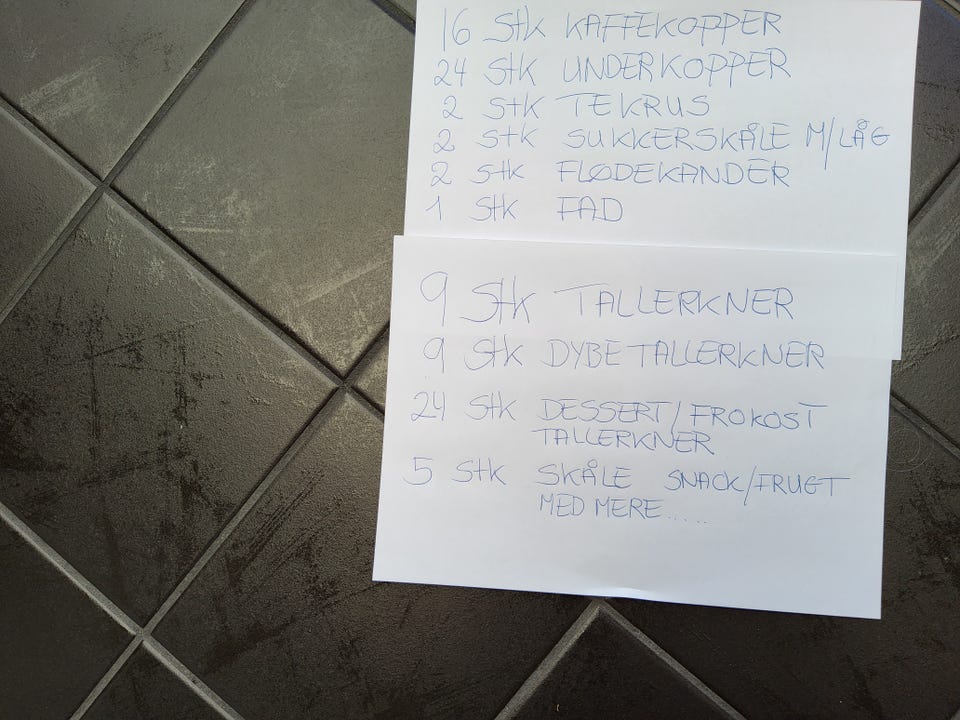 16 Stk KAFFEKOPPER
24 Stk UNDERKOPPER
2 Stk TEKRUS
2 Stk SUKKERSKÅLE M/LÅG
2 Stk FLØDEKANDER
1 Stk FAD
9 Stk TALLERKNER
9 Stk DYBE TALLERKNER
24 Stk DESSERT/FROKOST
TALLERKNER
5 Stk SKÅLE SNACK/FRUGT
MED MERE.....